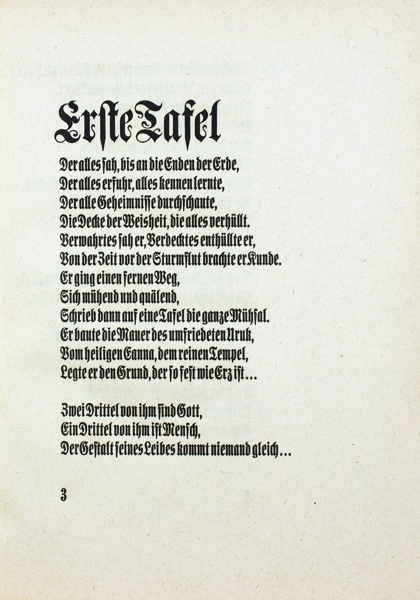 Erste Tafel
Der alles sah, bis an die Enden der Erde,
Der alles erfuhr, alles kennen lernte,
Der alle Geheimnisse durchschaute,
Die Decke der Weisheit, die alles verhüllt.
Verwahrtes sah er, Verdecktes enthüllte er,
Von der Zeit vor der Sturmflut brachte er Kunde.
Er ging einen fernen Weg,
Sich mühend und quälend,
Schrieb dann auf eine Tafel die ganze Mühsal.
Er baute die Mauer des umfriedeten Uruk,
Vom heiligen Eanna, dem reinen Tempel,
Legte er den Grund, der so fest wie Erz ist...
Zwei Drittel von ihm sind Gott,
Ein Drittel von ihm ist Mensch,
Der Gestalt seines Leibes kommt niemand gleich...
3